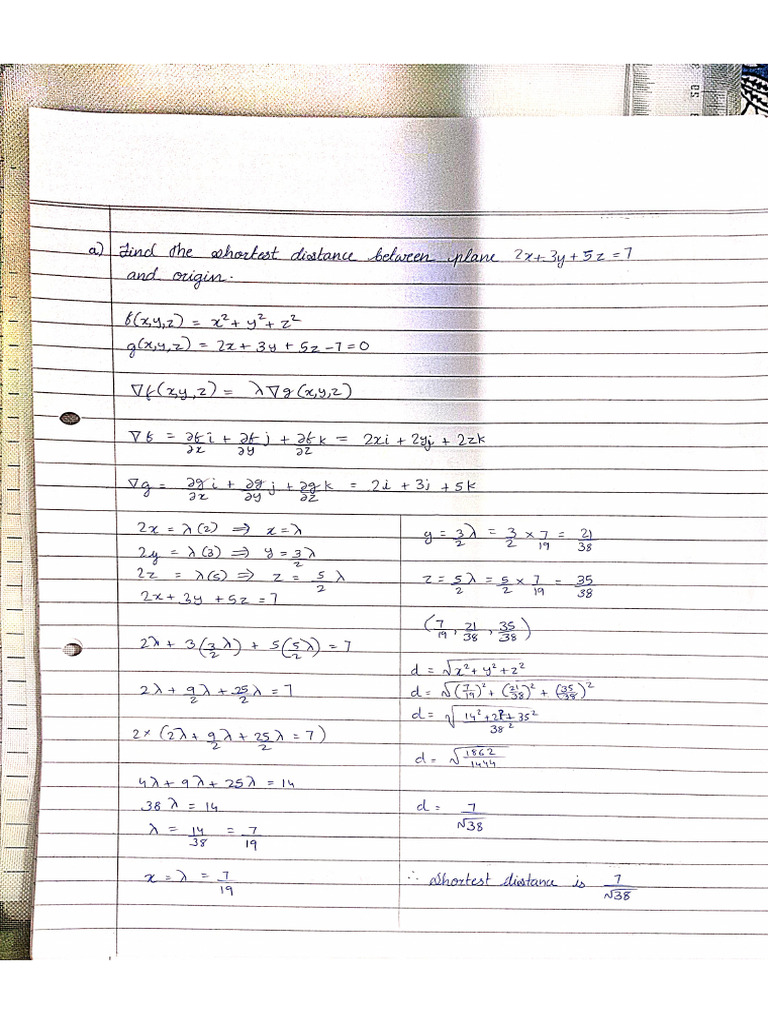 a) Find the shortest distance between plane 2x+3y+5z=7
and origin.
f(x,y,z) = x² + y² + z²
g(x,y,z) = 2x + 3y + 5z - 7 = 0
∇f(x,y,z) = λ∇g(x,y,z)
∇f = ∂f/∂x i + ∂f/∂y j + ∂f/∂z k = 2xi + 2yj + 2zk
∇g = ∂g/∂x i + ∂g/∂y j + ∂g/∂z k = 2i + 3j + 5k
2x = λ(2) ⇒ x = λ
2y = λ(3) ⇒ y = 3/2 λ
2z = λ(5) ⇒ z = 5/2 λ
2x + 3y + 5z = 7
2λ + 3(3/2 λ) + 5(5/2 λ) = 7
2λ + 9/2 λ + 25/2 λ = 7
2×(2λ + 9/2 λ + 25/2 λ = 7)
4λ + 9λ + 25λ = 14
38λ = 14
λ = 14/38 = 7/19
x = λ = 7/19
y = 3/2 λ = 3/2 × 7/19 = 21/38
z = 5/2 λ = 5/2 × 7/19 = 35/38
(7/19, 21/38, 35/38)
d = √(x² + y² + z²)
d = √((7/19)² + (21/38)² + (35/38)²)
d = √((14² + 21² + 35²)/38²)
d = √(1862/1444)
d = 7/√38
∴ Shortest distance is 7/√38